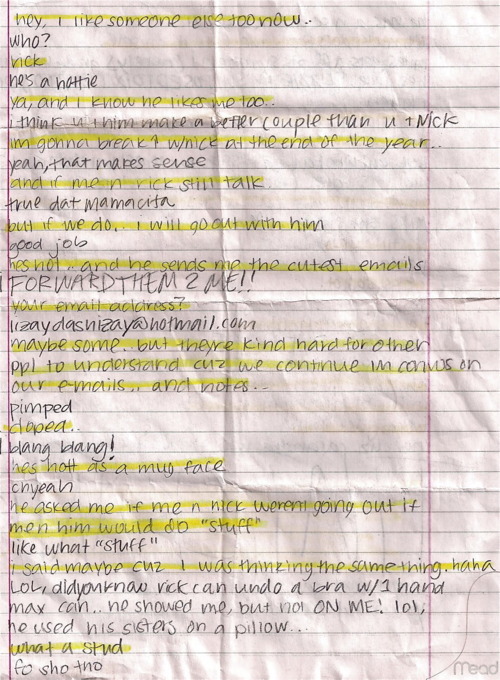 hey, i like someone else too now..
who?
rick
he's a hottie
ya, and i know he likes me too..
i think u + him make a better couple than u + Nick
im gonna break ↑ w/nick at the end of the year..
yeah, that makes sense
and if me n rick still talk
true dat mamacita
but if we do... i will go out with him
good job
hes hot.. and he sends me the cutest emails
FORWARD THEM 2 ME!!
your email address?
lizaydashizay@hotmail.com
maybe some.. but theyre kind hard for other
ppl to understand cuz we continue im convos on
our e-mails... and notes...
pimped
cloped..
blang blang!
hes hott as a mug face
chyeah
he asked me if me n nick werent going out if
me n him would do "stuff"
like what "stuff"
i said maybe cuz I was thinking the same thing. haha
LOL, didyouknow rick can undo a bra w/ 1 hand
max can.. he showed me, but not ON ME! lol,
he used his sisters on a pillow...
what a stud
fo sho tho
mead